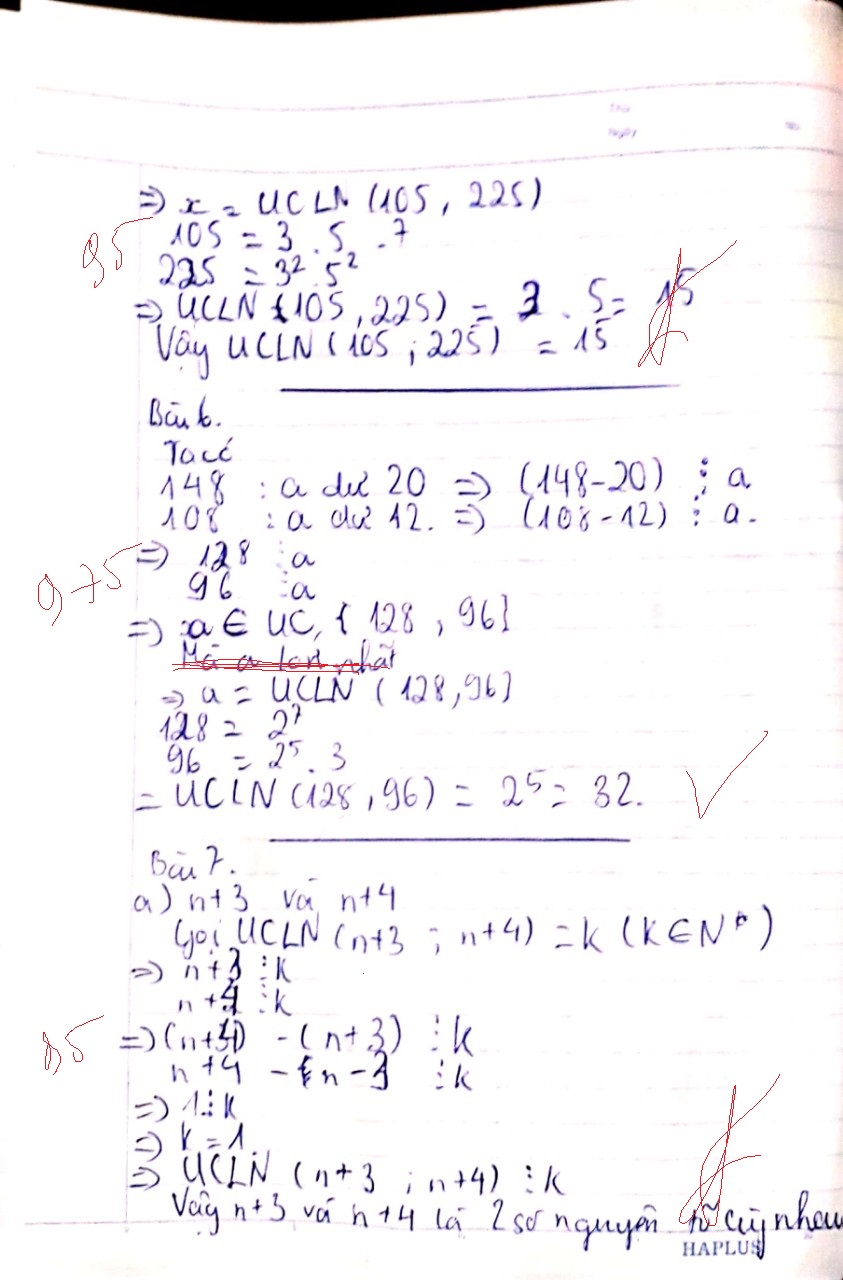 Thứ
Ngày
No.
=> x = UCLN (105, 225)
105 = 3 . 5 . 7
95
225 = 3² . 5²
=> UCLN (105, 225) = 3 . 5 = 15
Vậy UCLN (105 ; 225) = 15
Bài 6.
Ta có
148 : a dư 20 => (148-20) ⋮ a
108 : a dư 12. => (108-12) ⋮ a.
=> 128 ⋮ a
975
96 ⋮ a
=> a ∈ UC, { 128 , 96}
Mà a lớn nhất
=> a = UCLN ( 128,96}
128 = 2⁷
96 = 2⁵ . 3
= UCLN (128, 96) = 2⁵ = 32.
Bài 7.
a) n+3 và n+4
Gọi UCLN (n+3 ; n+4) = k (k∈N*)
=> n+3 ⋮ k
n+4 ⋮ k
=> (n+4) - (n+3) ⋮ k
n+4 - n - 3 ⋮ k
=> 1 ⋮ k
=> k = 1
=> UCLN (n+3 ; n+4) ⋮ k
Vậy n+3 và n+4 là 2 số nguyên tố cùng nhau
HAPLUS